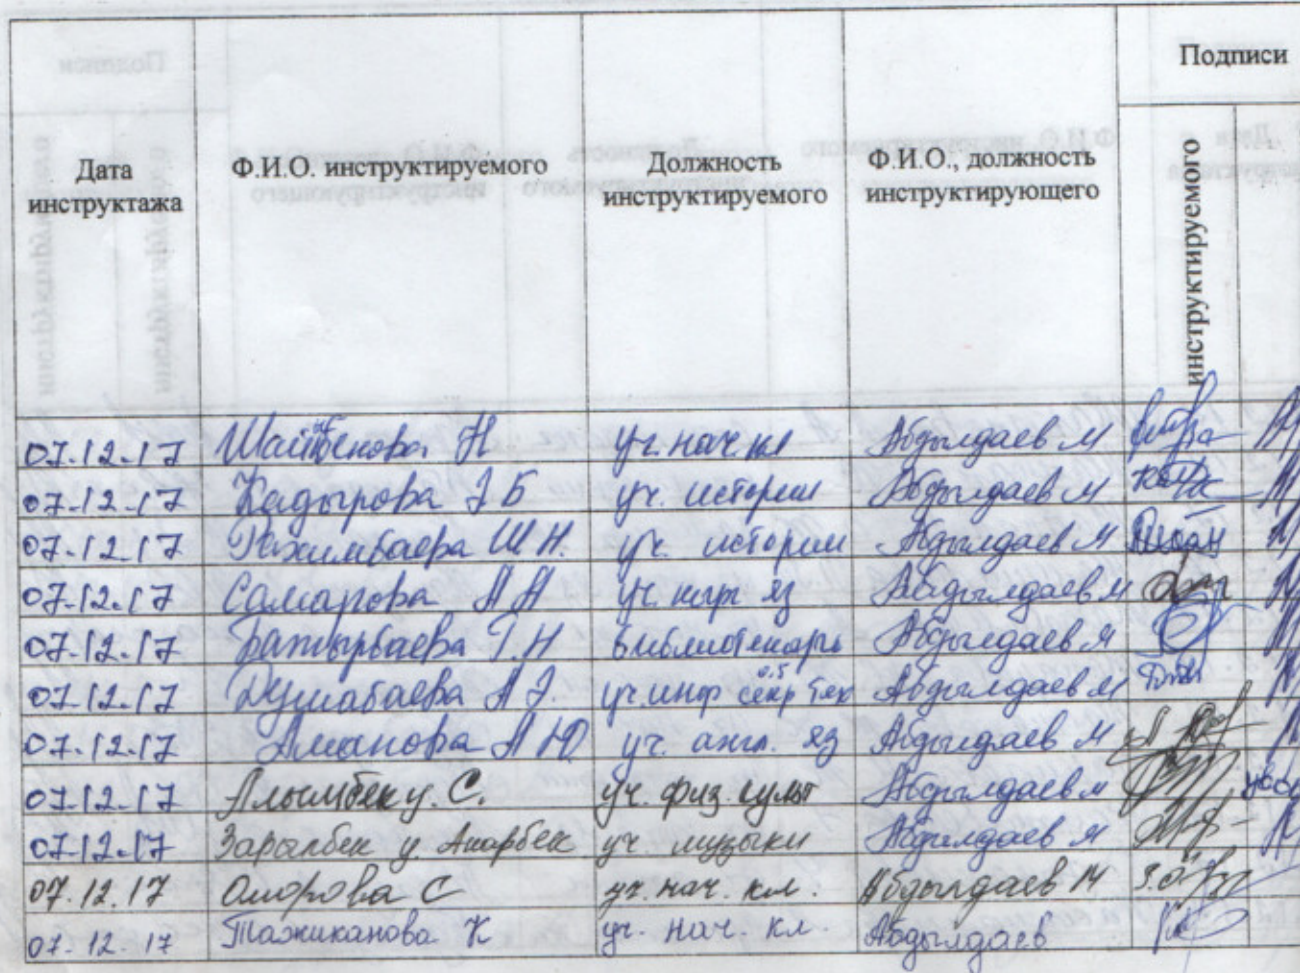 Дата инструктажа
Ф.И.О. инструктируемого
Должность инструктируемого
Ф.И.О., должность инструктирующего
Подписи
инструктируемого
07.12.17 Шайбекова Н уч. нач кл Абдылдаев М
07.12.17 Кадырова Э Б уч. истории Абдылдаев М
07.12.17 Рахимбаева Ш Н. уч. истории Абдылдаев М
07.12.17 Самарова А А уч. кырг яз Абдылдаев М
07.12.17 Батырбаева Г. Н библиотекарь Абдылдаев М
07.12.17 Душабаева А Э. уч. инф секр Абдылдаев М
07.12.17 Аманова А Ю уч. англ. яз Абдылдаев М
07.12.17 Алымбек у. С. уч. физ. культ Абдылдаев М
07.12.17 Зарылбек у. Анарбек уч. музыки Абдылдаев М
07.12.17 Оморова С уч. нач. кл. Абдылдаев М
07.12.17 Тажиканова К уч. нач. кл. Абдылдаев